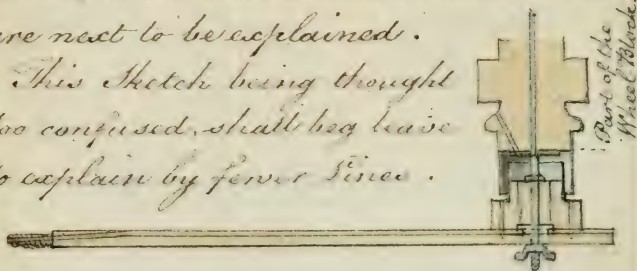 are next to be explained.
This Sketch being thought
too confused, shall beg leave
to explain by fewer Lines.
Part of the
Wheel Block.